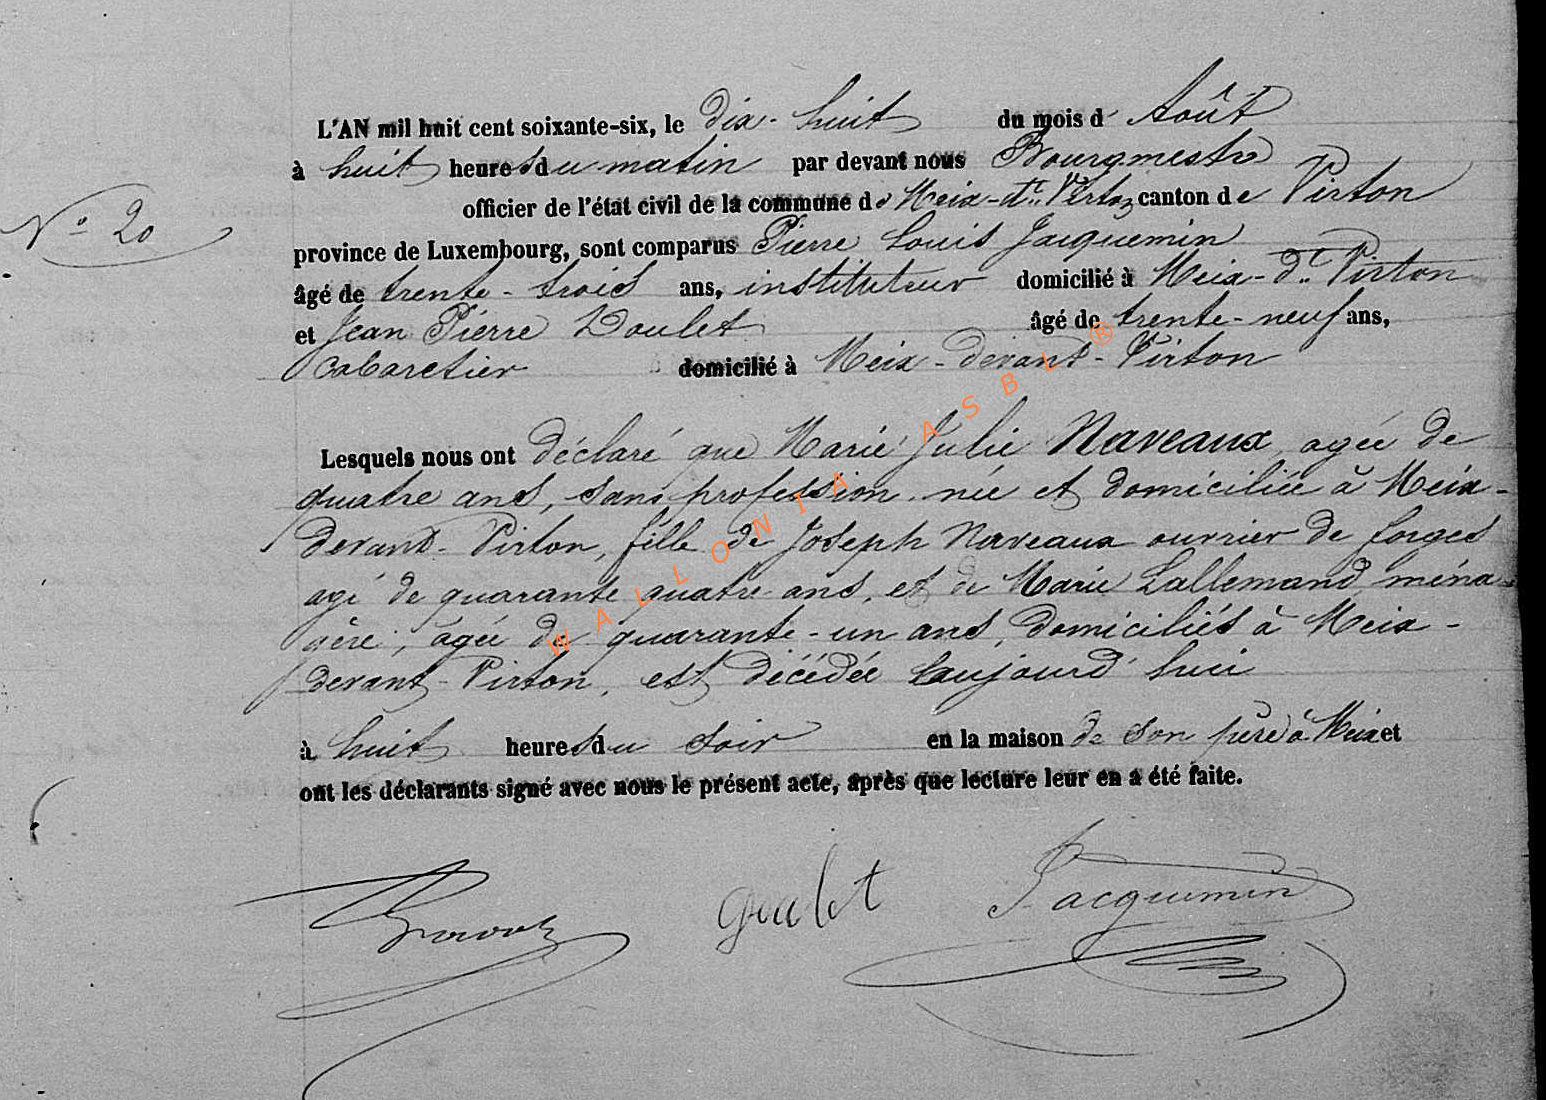 L'AN mil huit cent soixante-six, le dix-huit du mois d' Août
à huit heures du matin par devant nous Bourgmestre
officier de l'état civil de la commune de Meix-dt. Virton canton de Virton
N° 20
province de Luxembourg, sont comparus Pierre Louis Jacquemin
âgé de trente-trois ans, instituteur domicilié à Meix-dt. Virton
et Jean Pierre Doulet âgé de trente-neuf ans,
cabaretier domicilié à Meix-devant-Virton
Lesquels nous ont déclaré que Marie Julie Naveaux, agée de
quatre ans, sans profession née et domiciliée à Meix-
devant-Virton, fille de Joseph Naveaux ouvrier de forges
agé de quarante quatre ans, et de Marie Lallemand, ména-
gère, agée de quarante-un ans domiciliés à Meix-
devant-Virton, est décédée aujourd'hui
à huit heures du soir en la maison de son père à Meix et
ont les déclarants signé avec nous le présent acte, après que lecture leur en a été faite.
goulet Jacquemin
WALLONIA ASBL ®